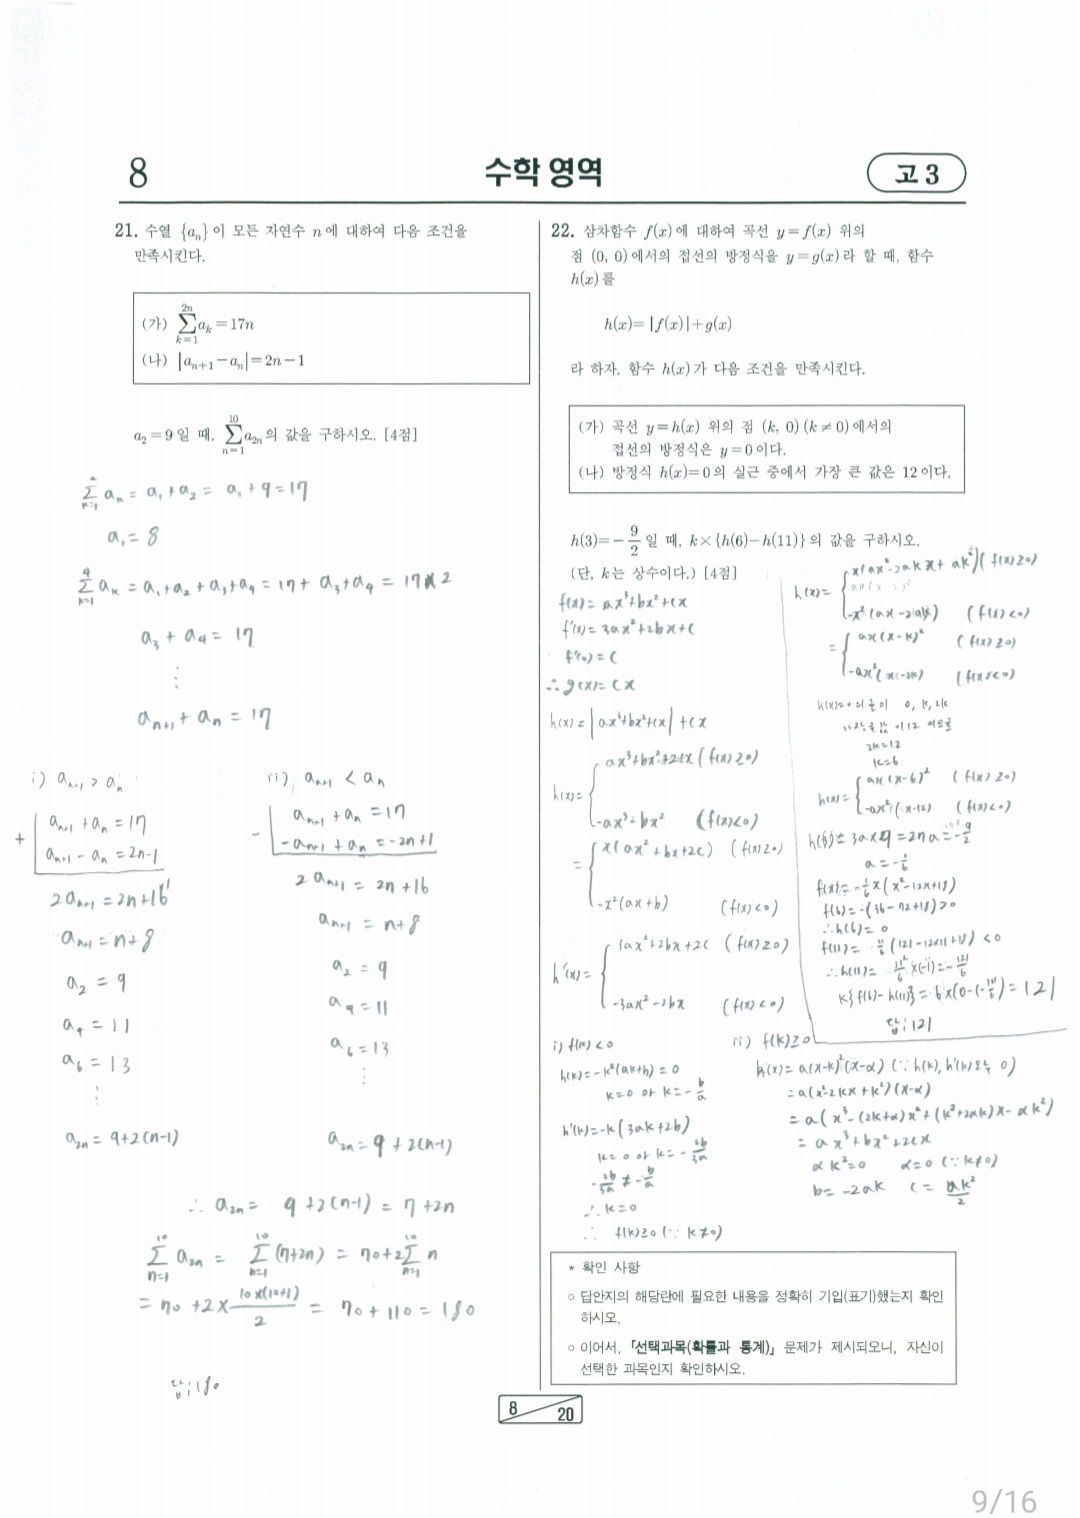 8
수학 영역
고 3
21. 수열 {aₙ}이 모든 자연수 n에 대하여 다음 조건을
만족시킨다.
(가) ∑_{k=1}^{2n} aₖ = 17n
(나) |aₙ₊₁ - aₙ| = 2n - 1
a₂ = 9일 때, ∑_{n=1}^{10} a₂ₙ의 값을 구하시오. [4점]
a₁ + a₂ = a₁ + 9 = 17
a₁ = 8
∑_{k=1}^{4} aₖ = a₁ + a₂ + a₃ + a₄ = 17 + a₃ + a₄ = 17 × 2
a₃ + a₄ = 17
⋮
aₙ₊₁ + aₙ = 17
i) aₙ₊₁ > aₙ
+
aₙ₊₁ + aₙ = 17
aₙ₊₁ - aₙ = 2n-1
2aₙ₊₁ = 2n+16
aₙ₊₁ = n+8
a₂ = 9
a₄ = 11
a₆ = 13
⋮
a₂ₙ = 9+2(n-1)
ii) aₙ₊₁ < aₙ
-
aₙ₊₁ + aₙ = 17
-aₙ₊₁ + aₙ = -2n+1
2aₙ₊₁ = 2n+16
aₙ₊₁ = n+8
a₂ = 9
a₄ = 11
a₆ = 13
⋮
a₂ₙ = 9+2(n-1)
∴ a₂ₙ = 9+2(n-1) = 7+2n
∑_{n=1}^{10} a₂ₙ = ∑_{n=1}^{10} (7+2n) = 70+2∑_{n=1}^{10} n
= 70 + 2 × 10×(10+1)/2 = 70 + 110 = 180
답: 180
22. 삼차함수 f(x)에 대하여 곡선 y = f(x) 위의
점 (0, 0)에서의 접선의 방정식을 y = g(x)라 할 때, 함수
h(x)를
h(x) = |f(x)| + g(x)
라 하자. 함수 h(x)가 다음 조건을 만족시킨다.
(가) 곡선 y = h(x) 위의 점 (k, 0) (k ≠ 0)에서의
접선의 방정식은 y = 0이다.
(나) 방정식 h(x) = 0의 실근 중에서 가장 큰 값은 12이다.
h(3) = -9/2 일 때, k × {h(6) - h(11)}의 값을 구하시오.
(단, k는 상수이다.) [4점]
f(x) = ax³+bx²+cx
f'(x) = 3ax²+2bx+c
f'(0) = c
∴ g(x) = cx
h(x) = |ax³+bx²+cx| + cx
h(x) = { ax³+bx²+2cx (f(x)≥0)
-ax³-bx² (f(x)<0)
= { x(ax²+bx+2c) (f(x)≥0)
-x²(ax+b) (f(x)<0)
h'(x) = { 3ax²+2bx+2c (f(x)≥0)
-3ax²-2bx (f(x)<0)
i) f(k)<0
h(k) = -k²(ak+b) = 0
k=0 or k=-b/a
h'(k) = -k(3ak+2b)
k=0 or k=-2b/3a
-2b/3a ≠ -b/a
∴ k=0
∴ f(k)≥0 (∵ k≠0)
ii) f(k)≥0
h(x) = a(x-k)²(x-α) (∵ h(k), h'(k) 모두 0)
= a(x²-2kx+k²)(x-α)
= a(x³-(2k+α)x²+(k²+2αk)x-αk²)
= ax³+bx²+2cx
αk²=0 α=0 (∵ k≠0)
b = -2ak c = ak²/2
h(x) = { x(ax²-2akx+ak²) (f(x)≥0)
-x²(ax-2ak) (f(x)<0)
= { ax(x-k)² (f(x)≥0)
-ax²(x-2k) (f(x)<0)
h(x)=0의 근이 0, k, 2k
가장 큰 값이 12 이므로
2k=12
k=6
h(x) = { ax(x-6)² (f(x)≥0)
-ax²(x-12) (f(x)<0)
h(3) = 3a×9 = 27a = -9/2
a = -1/6
f(x) = -1/6 x(x²-12x+18)
f(6) = -(36-72+18)>0
∴ h(6) = 0
<0
∴ h(11) = 11²/6 ×(-1) = -121/6
k{f(6)-h(11)} = 6×(0-(-121/6)) = 121
답: 121
* 확인 사항
○ 답안지의 해당란에 필요한 내용을 정확히 기입(표기)했는지 확인
하시오.
○ 이어서, 「선택과목(확률과 통계)」 문제가 제시되오니, 자신이
선택한 과목인지 확인하시오.
8
20
9/16